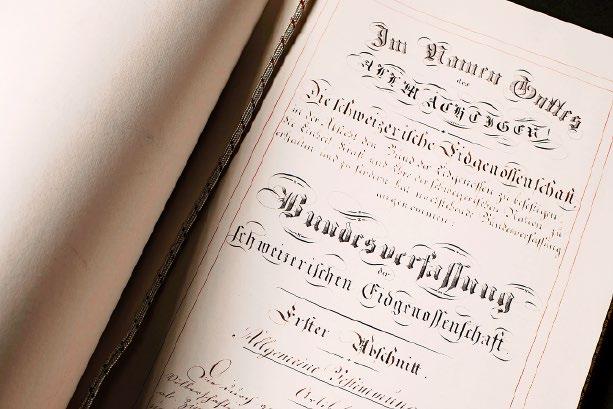 Im Namen Gottes
des
ALLMÆCHTIGEN!
Die schweizerische Eidgenossenschaft,
in der Absicht, den Bund der Eidgenossen zu befestigen,
die Einheit, Kraft und Ehre der schweizerischen Nation zu
erhalten und zu fördern, hat nachstehende Bundesverfassung
angenommen:
Bundesverfassung
der
schweizerischen Eidgenossenschaft
Erster Abschnitt.
Allgemeine Bestimmungen